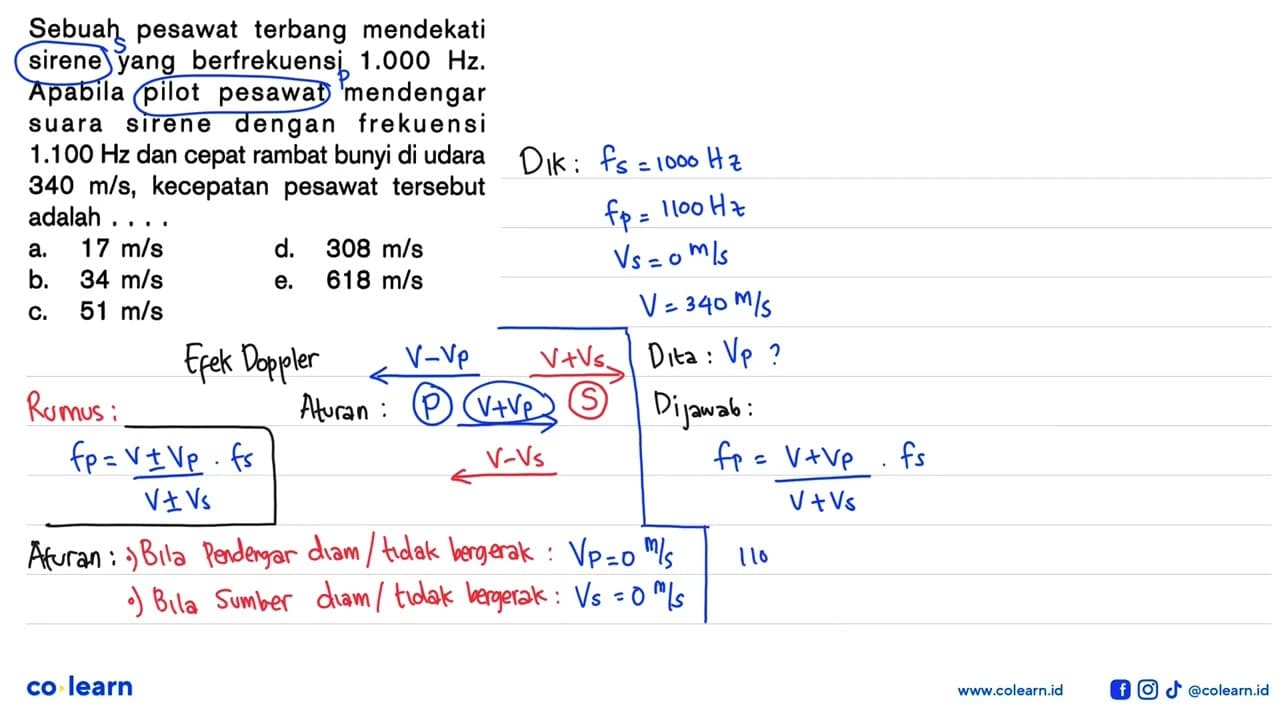 Sebuah pesawat terbang mendekati
S
sirene yang berfrekuensi 1.000 Hz.
P
Apabila pilot pesawat mendengar
suara sirene dengan frekuensi
1.100 Hz dan cepat rambat bunyi di udara
340 m/s, kecepatan pesawat tersebut
adalah . . . .
a. 17 m/s d. 308 m/s
b. 34 m/s e. 618 m/s
c. 51 m/s
Dik: fs = 1000 Hz
fp = 1100 Hz
Vs = 0 m/s
V = 340 m/s
Efek Doppler
V-Vp V+Vs
Aturan : P V+Vp S
V-Vs
Rumus:
fp = V±Vp . fs
V±Vs
Dita : Vp ?
Dijawab:
fp = V+Vp . fs
V+Vs
110
Aturan : •) Bila Pendengar diam / tidak bergerak : Vp=0 m/s
•) Bila Sumber diam / tidak bergerak : Vs = 0 m/s
co learn
www.colearn.id @colearn.id